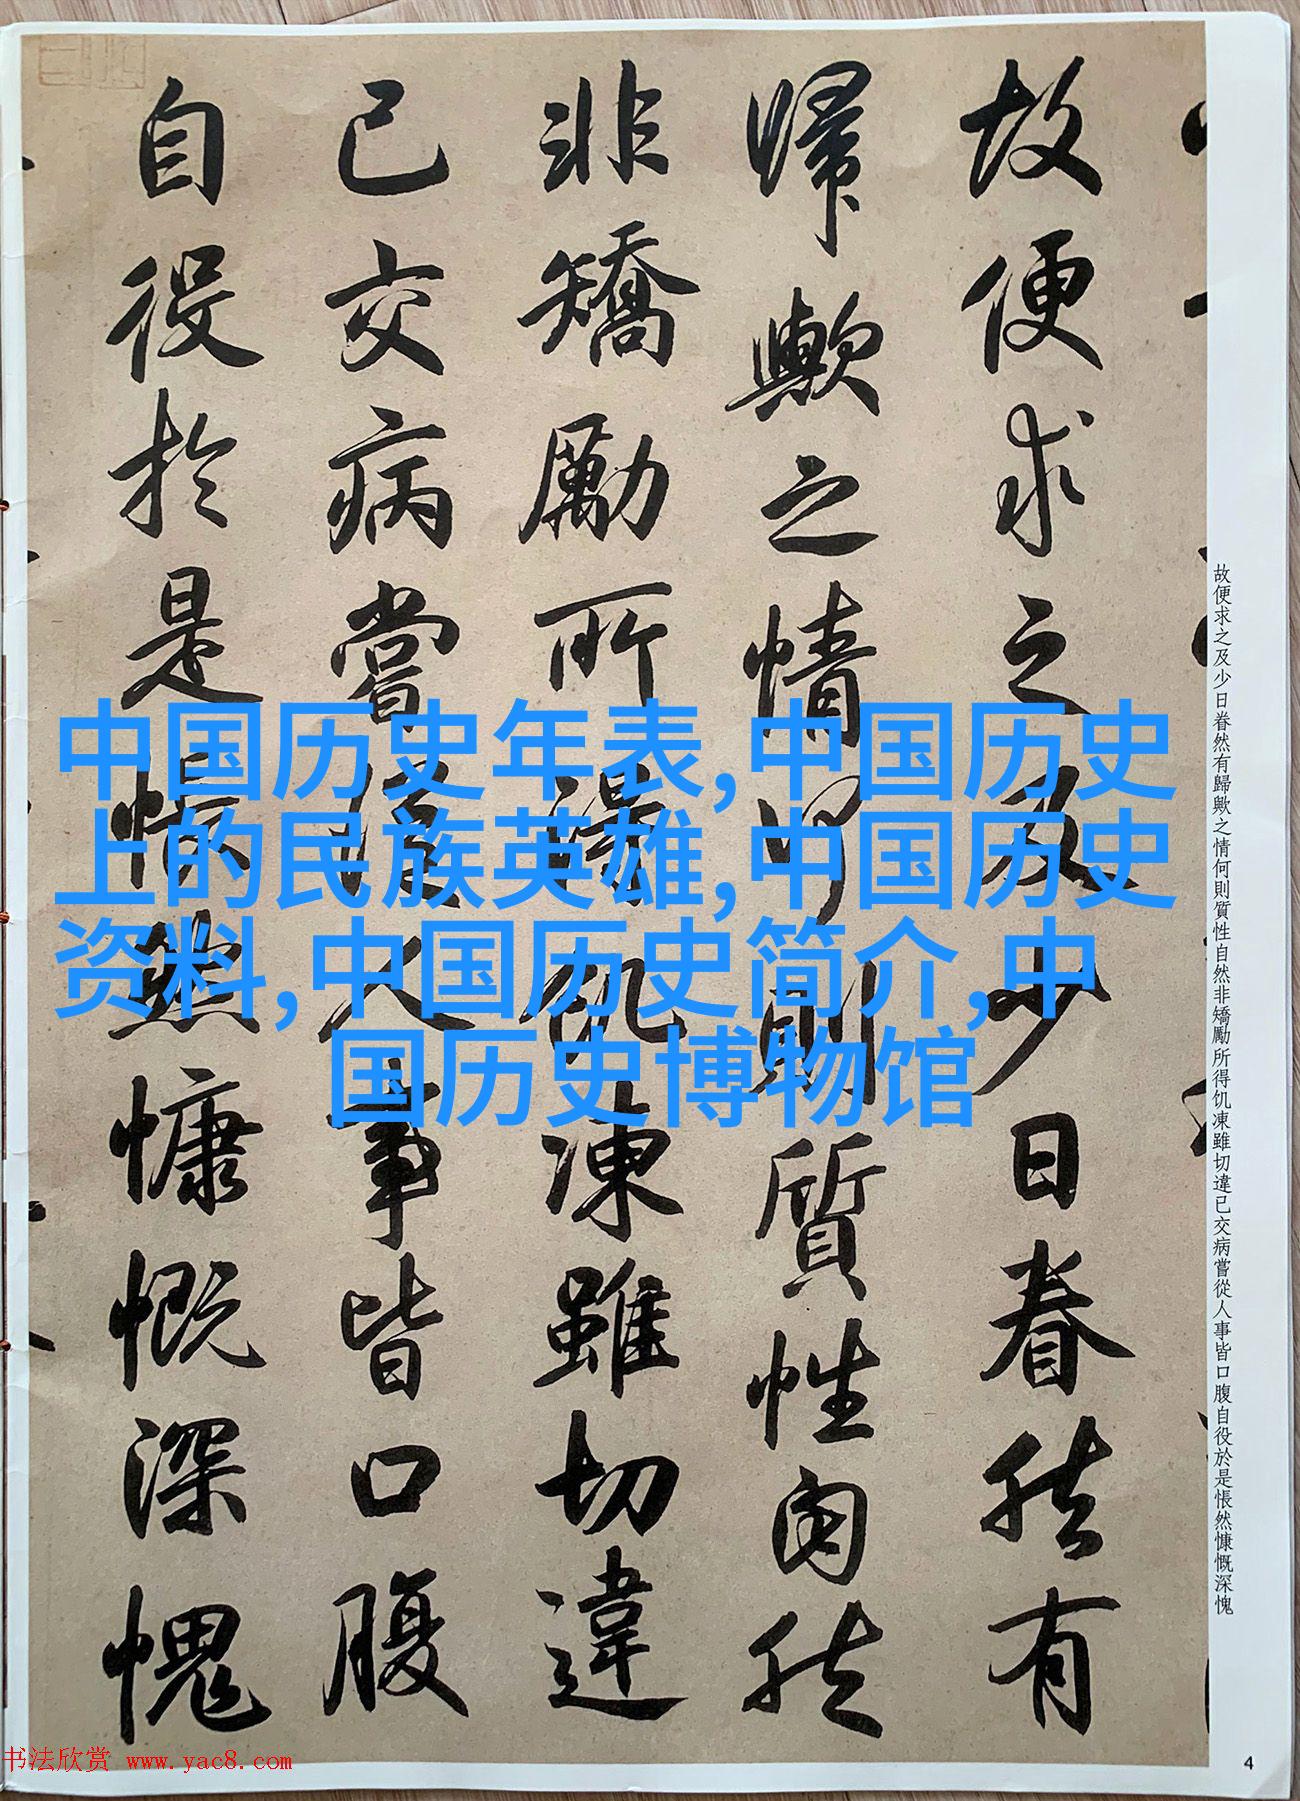 故便求之及少日眷然有歸歟之情何則質性自然非矯勵所得饥凍雖切違已交病嘗從人事皆口腹自役於是悵然慷慨深愧
故便求之及少日眷然有
歸歟之情何則質性自然
非矯勵所得饥凍雖切違
已交病嘗從人事皆口腹
自役於是悵然慷慨深愧
中国历史年表,中国历史
上的民族英雄,中国历史
资料,中国历史简介,中
国历史博物馆
书法欣赏 www.yac8.com
4